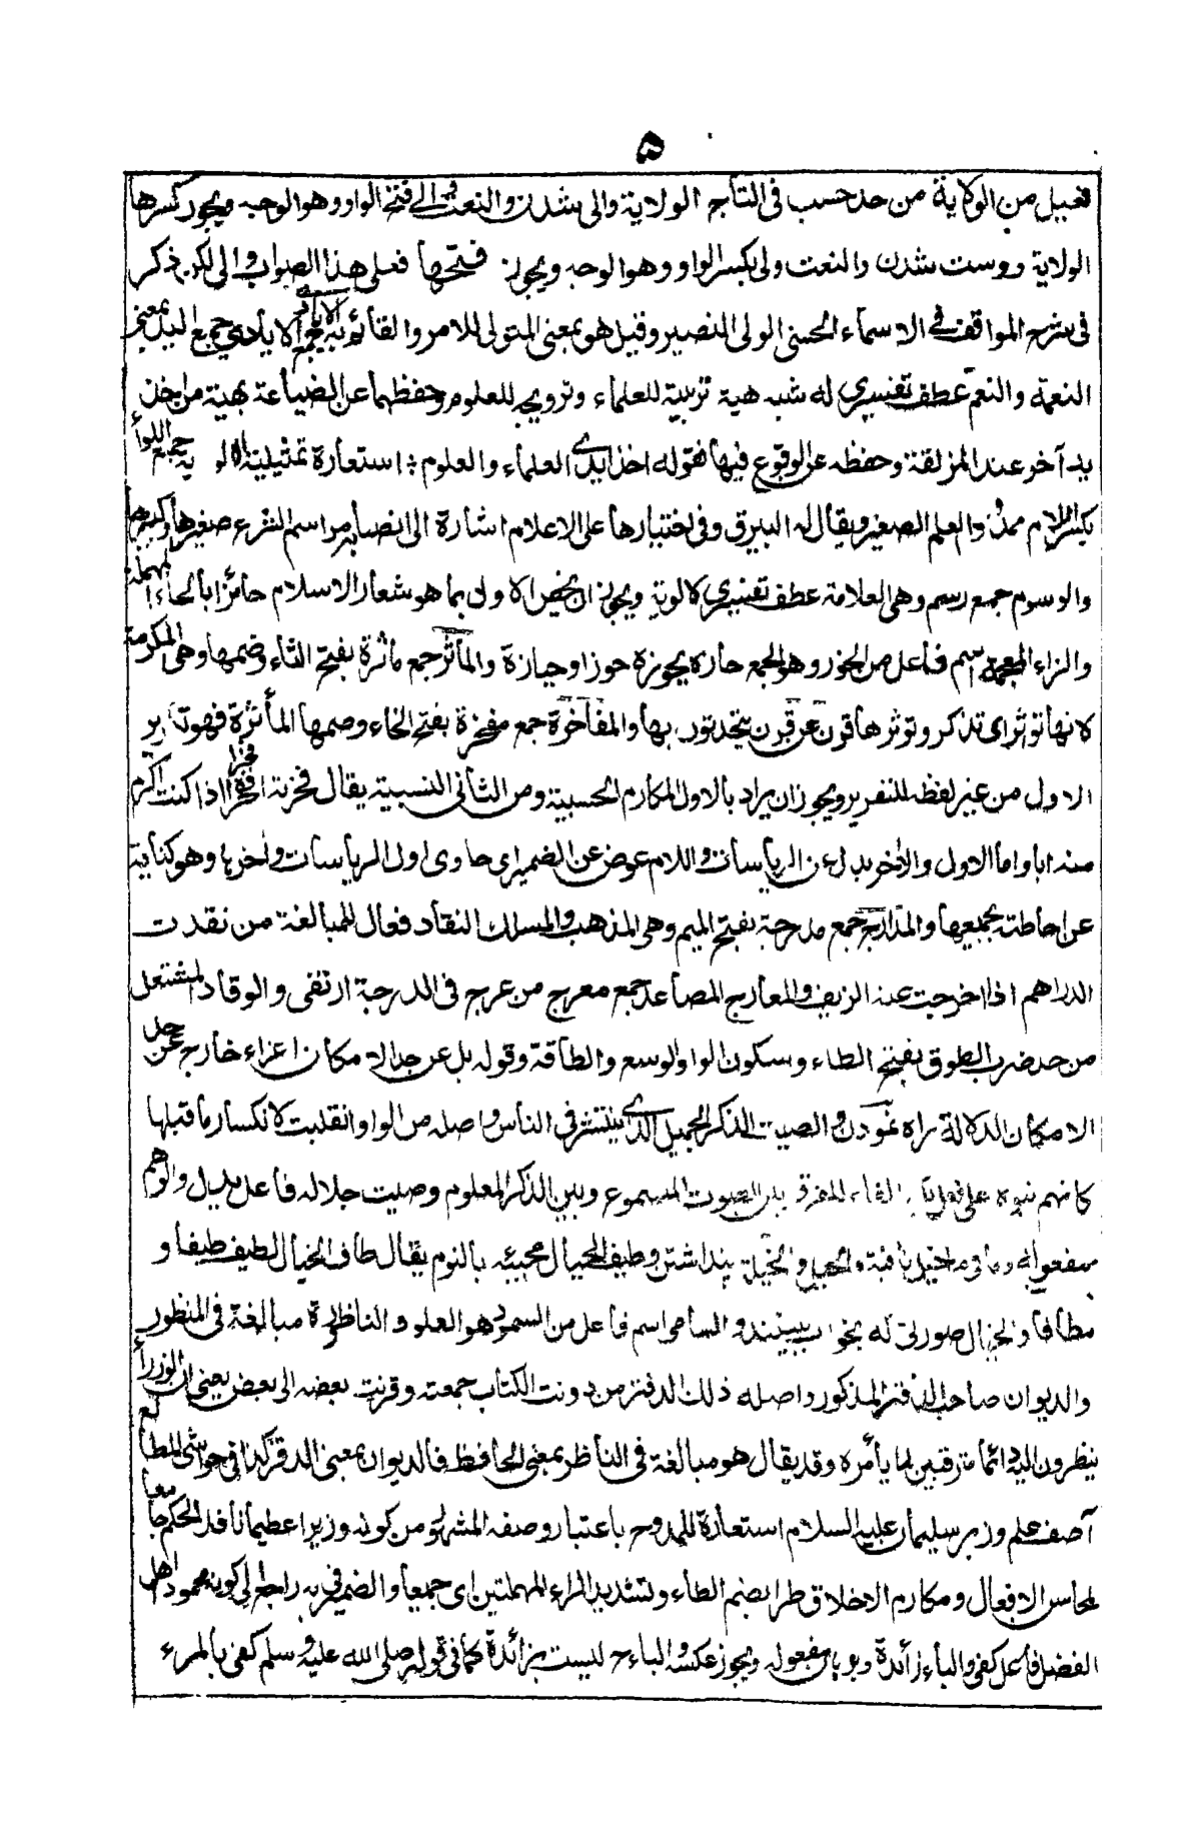 ۵
فعيل من الولاية من حد حسب فى التاج الولاية والى شدن والنعت والى فتح الواو وهو الوجه ويجوز كسرها
الولاية دوست شدن والنعت ولى بكسر الواو وهو الوجه ويجوز فتحها فعلى هذا الصواب والى لكن ذكر
فى شرح المواقف فى الاسماء الحسنى الولى النصير وقيل هو بمعنى المتولى للامر والقائم به الايادى جمع الايادى جمع اليد بمعنى
النعمة والنعم عطف تفسيرى له شبه هيئة تربية للعلماء وترويجه للعلوم وحفظهما عن الضياعة بهيئة من اخذ
يد آخر عند المزلقة وحفظه عن الوقوع فيها فقوله اخذ ايدى العلماء والعلوم استعارة تمثيلية الالوية جمع اللواء
بكسر اللام ممدودا والعلم الصغير ويقال له البيرق وفى اختيارها على الاعلام اشارة الى انصابه مراسم الشرع صغيرها وكبيرها
والوسوم جمع رسم وهى العلامة عطف تفسيرى كالوية ويجوز ان يخص الاول بما هو شعار الاسلام حائزا بالحاء المهملة
والزاء المعجمة اسم فاعل من الحوز وهو الجمع حازه يحوزه حوزا وحيازة والمآثر جمع مأثرة بفتح الثاء وضمها وهى المكرمة
لانها تؤثر اى تذكر وتؤثرها قرن عن قرن يتحدثون بها والمفاخرة جمع مفخرة بفتح الخاء وضمها المأثرة فهو تكرير
الاول من غير لفظه للتقرير ويجوز ان يراد بالاول المكارم الحسبية ومن الثانى النسبية يقال فخرته افخره فخرا اذا كنت اكرم
منه ابا واما الاول والاخر بدل عن الرياسات واللام عوض عن الضمير اى حاوى اول الرياسات واخرها وهو كناية
عن احاطته بجميعها والمدارج جمع مدرجة بفتح الميم وهى المذهب والمسلك النقاد فعال للمبالغة من نقدت
الدراهم اذا اخرجت عنه الزيف والمعارج المصاعد جمع معرج من عرج فى الدرجة ارتقى والوقاد المشتعل
من حد ضرب الطوق بفتح الطاء وسكون الواو الوسع والطاقة وقوله بل عن حد الامكان اعزاء خارج عن حد
الامكان الدلالة راه نمودن والصيت الذكر الجميل الذى ينتشر فى الناس واصله من الواو انقلبت لانكسار ما قبلها
كانهم نبوه على فعل بكسر الفاء للفرق بين الصوت المسموع وبين الذكر المعلوم وصيت جلاله فاعل يدل والوهم
مفعوله وما فى ما خيل نافية والخيل والخيلة پنداشتن وطيف الخيال مجيئه بالنوم يقال طاف الخيال يطيف طيفا و
مطافا والخيال صورتى كه بخواب ببينند والسامى اسم فاعل من السمو وهو العلو والناظورة مبالغة فى المنظور
والديوان صاحب الدفتر المذكور واصله ذلك الدفتر من دونت الكتاب جمعته وقرنت بعضه الى بعض يعنى ان الوزراء
ينظرون اليه دائما مترقبين لما يأمره وقد يقال هو مبالغة فى الناظر بمعنى الحافظ فالديوان بمعنى الدفتر كذا فى حواشى المطالع
آصف علم وزير سليمان عليه السلام استعارة للممدوح باعتبار وصفه المشهور من كونه وزيرا عظيما نافذ الحكم جامعا
لمحاسن الافعال ومكارم الاخلاق طرا بضم الطاء وتشديد الراء المهملتين اى جميعا والضمير فى به راجع الى كونه محمود اهل
الفضل فاعل كفى والباء زائدة وبه بيان مفعوله ويجوز عكسه والباء ح ليست بزائدة كما فى قوله صلى الله عليه وسلم كفى بالمرء